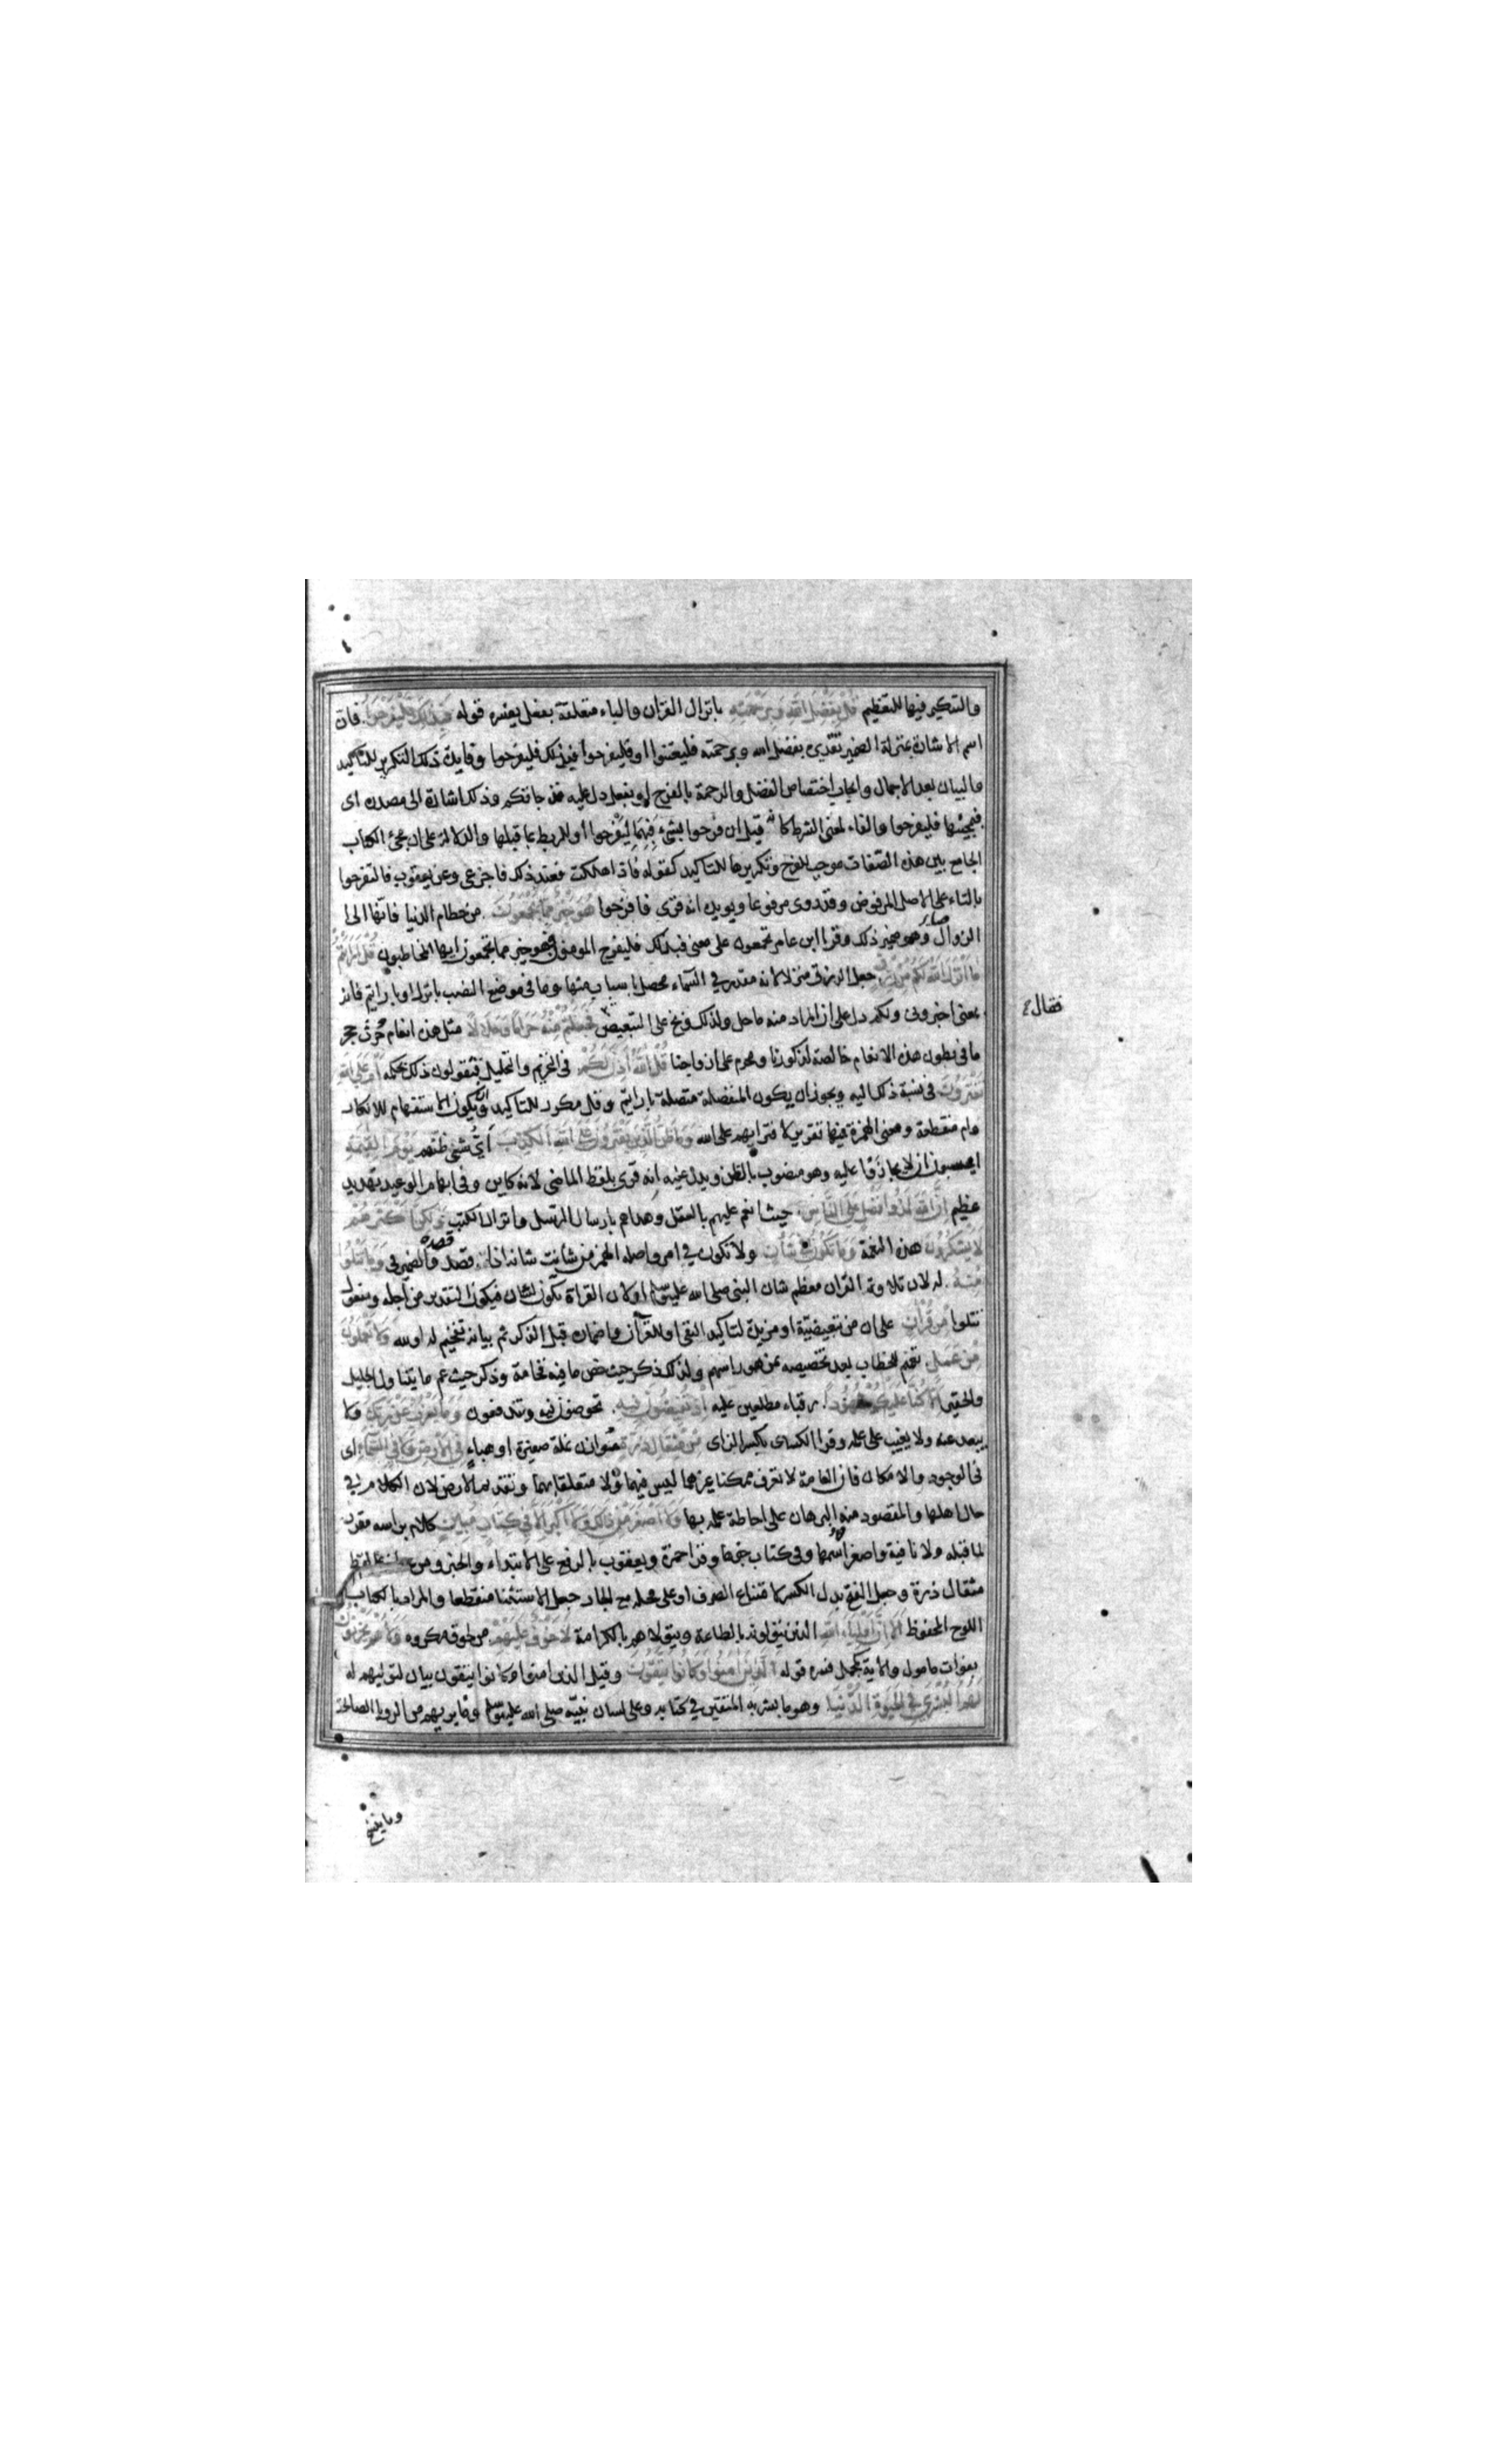 والتنكير فيها للتعظيم قُلْ بِفَضْلِ اللهِ وَبِرَحْمَتِهِ بانزال القرآن والباء متعلقة بفعل يفسره قوله فَبِذَلِكَ فَلْيَفْرَحُوا فان
اسم الاشارة بمنزلة الضمير تقديره بفضل الله وبرحمته فليعتنوا او فليفرحوا فبذلك فليفرحوا وفايدة ذلك التكرير للتاكيد
والبيان بعد الاجمال وايجاب اختصاص الفضل والرحمة بالفرح او بفعل دل عليه قد جاءتكم وذلك اشارة الى مصدره اى
فبمجيئها فليفرحوا والفاء لمعنى الشرط كانه قيل ان فرحوا بشئ فَبِهِمَا لِيَفْرحوا او للربط بما قبلها والدلالة على ان مجئ الكتاب
الجامع بين هذه الصفات موجب للفرح وتكريرها للتاكيد كقوله فاذا هلكت فعند ذلك فاجزعى وعن يعقوب فالتفرحوا
بالتاء على الاصل المرفوض وقد روى مرفوعا ويويده انه قرى فافرحوا هُوَ خَيْرٌ مِمَّا يَجْمَعُونَ من حطام الدنيا فانها الى
الزوال وهو ضمير ذلك وقرا ابن عامر تجمعون على معنى فبذلك فليفرح المومنون فهو خير مما تجمعون ايها المخاطبون قُلْ اَرَاَيْتُمْ
مَا اَنْزَلَ اللهُ لَكُمْ مِنْ رِزْقٍ جعل الرزق منزلا لانه مقدر في السماء محصل باسباب منها وما فى موضع النصب بانزل او بارايتم فانه
بمعنى اخبرونى ولكم دل على ان المراد منه ما حل ولذلك وبخ على التبعيض فَجَعَلْتُمْ مِنْهُ حَرَامًا وَحَلَالًا مثل هذه انعام وحرث حجر
ما فى بطون هذه الانعام خالصة لذكورنا ومحرم على ازواجنا قُلْ اللهُ اَذِنَ لَكُمْ فى التحريم والتحليل فتقولون ذلك بحكمه اَمْ عَلَى اللهِ
تَفْتَرُونَ فى نسبة ذلك اليه ويجوز ان يكون المنفصلة متصلة بارايتم وقل مكرر للتاكيد وان يكون الاستفهام للانكار
وام منقطعة ومعنى الهمزة فيها تقرير لافترايهم على الله وَمَا ظَنُّ الَّذِينَ يَفْتَرُونَ عَلَى اللهِ الْكَذِبَ اَيُّ شئ ظنهم يَوْمَ الْقِيٰمَةِ
ايحسبون ان لا يجازوا عليه وهو منصوب بالظن ويدل عليه انه قرى بلفظ الماضى لانه كاين وفى ابهام الوعيد تهديد
عظيم اِنَّ اللهَ لَذُو فَضْلٍ عَلَى النَّاسِ حيث انعم عليهم بالعقل وهداهم بارسال الرسل وانزال الكتب وَلَكِنَّ اَكْثَرَهُمْ
لَا يَشْكُرُونَ هذه النعمة وَمَا تَكُونُ فِي شَأْنٍ ولا تكون في امر واصله الهمز من شانت شانه اذا قصدت قصده والضمير فى وَمَا تَتْلُوا
مِنْهُ له لان تلاوة القران معظم شان النبى صلى الله عليه وسلم او لان القراة تكون لشان فيكون التقدير من اجله ومفعول
تتلوا مِنْ قُرْآنٍ على ان من تبعيضية او مزيدة لتاكيد النفى او للقرآن واضماره قبل الذكر ثم بيانه تفخيم له او لله وَلَا تَعْمَلُونَ
مِنْ عَمَلٍ تعميم للخطاب بعد تخصيصه بمن هو راسهم ولذلك ذكر حيث خص ما فيه فخامة وذكر حيث عم ما يتناول الجليل
والحقير اِلَّا كُنَّا عَلَيْكُمْ شُهُودًا رقباء مطلعين عليه اِذْ تُفِيضُونَ فِيهِ تخوضون فيه وتندفعون وَمَا يَعْزُبُ عَنْ رَبِّكَ ولا
يبعد عنه ولا يغيب على علمه وقرا الكساى بكسر الزاى مِنْ مِثْقَالِ ذَرَّةٍ موازن نملة صغيرة او هباءٍ فِي الْاَرْضِ وَلَا فِي السَّمَاءِ اى
فى الوجود والامكان فان العامة لا تعرف ممكنا غيرهما ليس فيهما ولا متعلقا بهما وتقديم الارض لان الكلام في
حال اهلها والمقصود منه البرهان على احاطة علمه بها وَلَا اَصْغَرَ مِنْ ذَلِكَ وَلَا اَكْبَرَ اِلَّا فِي كِتَابٍ مُبِينٍ كلام براسه مقرر
لما قبله ولا نافية واصغر اسمها وفى كتاب خبرها وقرا حمزة ويعقوب بالرفع على الابتداء والخبر ومن عطف على لفظ
مثقال ذرة وجعل الفتح بدل الكسر لامتناع الصرف او على محله مع الجار جعل الاستثنا منقطعا والمراد بالكتاب
اللوح المحفوظ اَلَا اِنَّ اَوْلِيَاءَ اللهِ الذين يتولونه بالطاعة ويتولاهم بالكرامة لَا خَوْفٌ عَلَيْهِمْ من لحوق مكروه وَلَا هُمْ يَحْزَنُونَ
بفوات مامول والاية كمجمل فسره قوله الَّذِينَ اٰمَنُوا وَكَانُوا يَتَّقُونَ وقيل الذين امنوا وكانوا يتقون بيان لتوليهم له
لَهُمُ الْبُشْرَى فِي الْحَيٰوةِ الدُّنْيَا وهو ما بشر به المتقين في كتابه وعلى لسان نبيّه صلى الله عليه وسلم وما يريهم من الرويا الصالحة
فقال